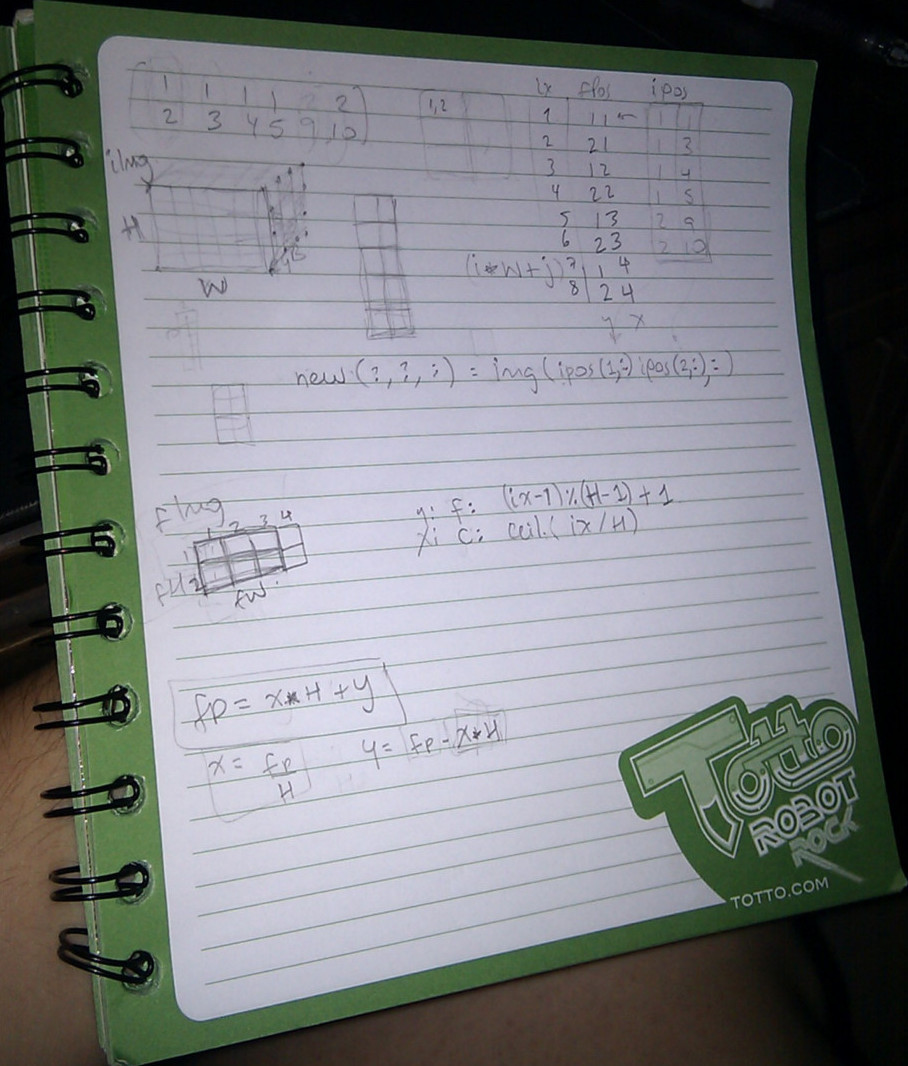 1 1 1 1 2 2
2 3 4 5 9 10
1,2
ix fPos ipos
1 11 1 1
2 21 1 3
3 12 1 4
4 22 1 5
5 13 2 9
6 23 2 10
(i*W+j) 7 1 4
8 2 4
y x
iImg
H
W
new(:,:,:) = img(ipos(1,:) ipos(2,:),:)
fImg
1 2 3 4
1
fH 2
fW
y: f: (ix-1)%(H-1)+1
x: c: ceil.(ix/H)
fp = x*H+y
x = fp/H y = fp-x*H
Totto
ROBOT
ROCK
TOTTO.COM